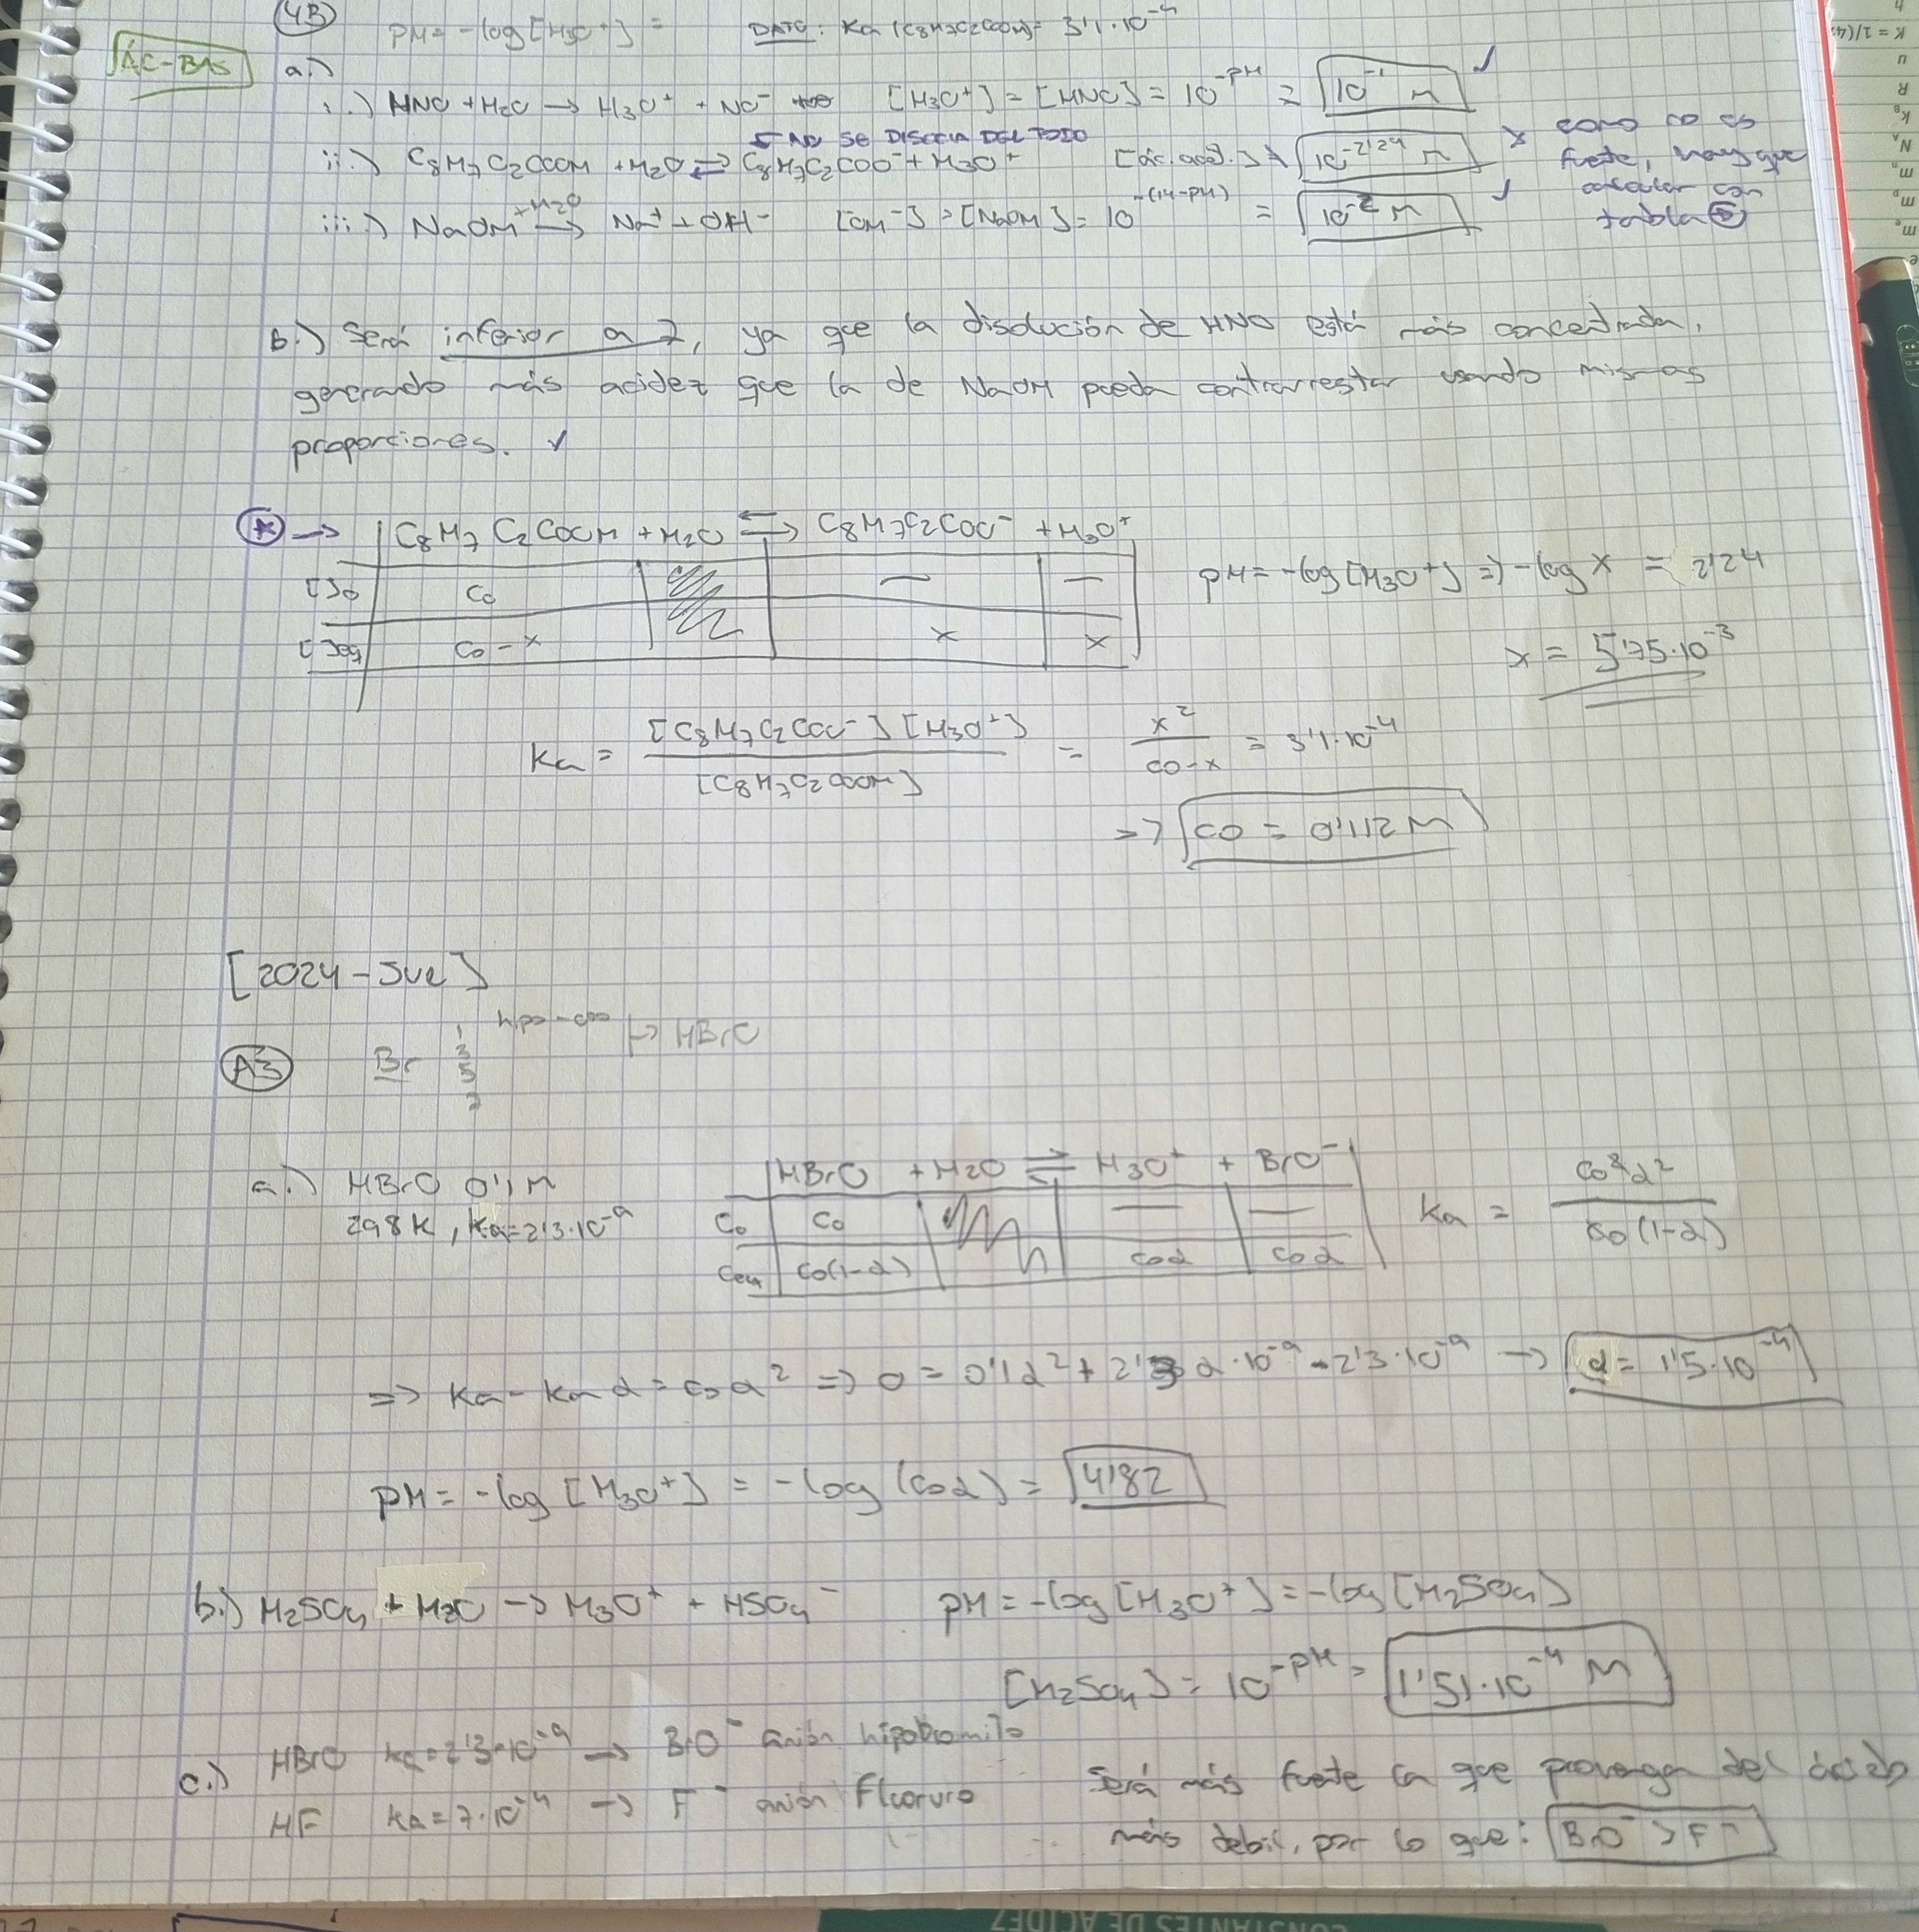 4B
pH = -log[H3O+] =
DATO: Ka (C8H7C2COOH) = 3'1·10^-4
ÁC-BAS
a.)
i.) HNO + H2O → H3O+ + NO- [H3O+] = [HNO] = 10^-pH = 10^-1 M ✓
← NO SE DISOCIA DEL TODO
ii.) C8H7C2COOH + H2O ⇌ C8H7C2COO- + H3O+ [ác. acét.] 10^-2'24 M x
como no es fuerte, hay que calcular con tabla *
iii.) NaOH +H2O → Na+ + OH- [OH-] = [NaOH] = 10^-(14-pH) = 10^-2 M ✓
b.) Será inferior a 7, ya que la disolución de HNO está más concentrada,
generando más acidez que la de NaOH pueda contrarrestar usando mismas
proporciones. ✓
* → C8H7C2COOH + H2O ⇌ C8H7C2COO- + H3O+
[]o Co — —
[]eq Co - x x x
pH = -log[H3O+] => -log x = 2'24
x = 5'75·10^-3
Ka = [C8H7C2COO-][H3O+] / [C8H7C2COOH] = x^2 / co-x = 3'1·10^-4
=> co = 0'112 M
[2024-Jul]
A3 Br 1 3 5 7 hipo-oso → HBrO
a.) HBrO 0'1 M
298 K, Ka = 2'3·10^-9
HBrO + H2O ⇌ H3O+ + BrO-
Co Co — —
Ceq Co(1-α) coα coα
Ka = co^2 α^2 / co(1-α)
=> Ka - Ka α = co α^2 => 0 = 0'1α^2 + 2'3 α·10^-9 - 2'3·10^-9 → α = 1'5·10^-4
pH = -log [H3O+] = -log (coα) = 4'82
b.) H2SO4 + H2O → H3O+ + HSO4- pH = -log[H3O+] = -log[H2SO4]
[H2SO4] = 10^-pH = 1'51·10^-4 M
c.) HBrO Ka = 2'3·10^-9 → BrO- anión hipobromito
HF Ka = 7·10^-4 → F- anión fluoruro
Será más fuerte la que provenga del ácido
más debil, por lo que: BrO- > F-
K = 1/(4
CONSTANTES DE ACIDEZ